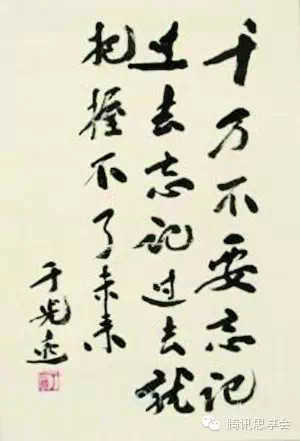 千万不要忘记
过去忘记过去就
把握不了未来
于光远
腾讯思享会